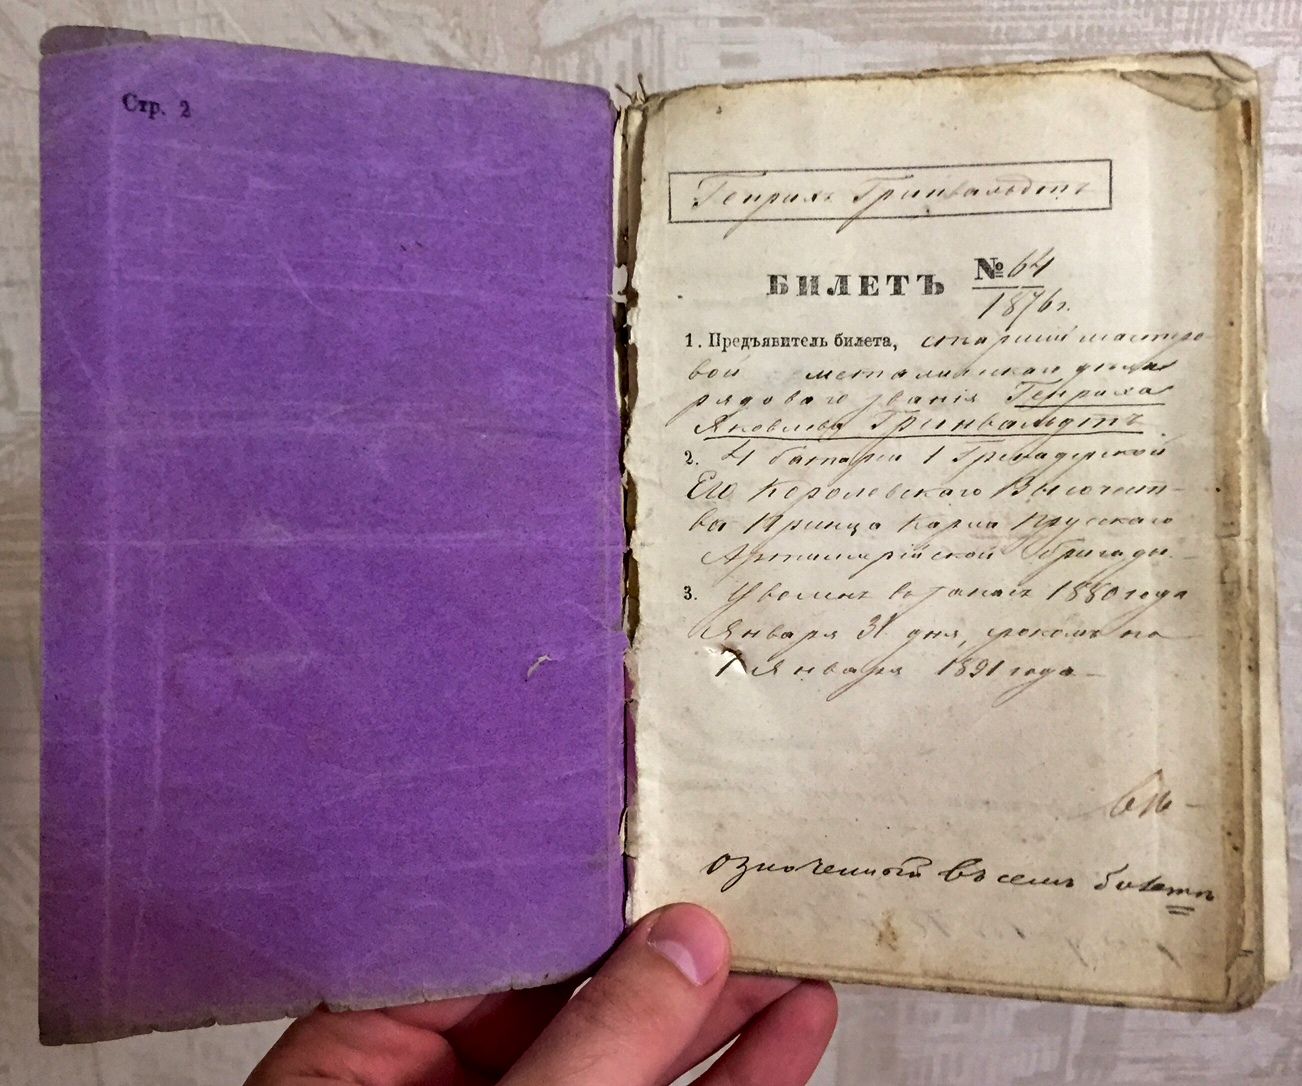 Стр. 2
Генрихъ Гринвальдтъ
БИЛЕТЪ № 64
1876 г.
1. Предъявитель билета, старшій мастеро-
вой
рядоваго званія Генриха
Яковлева Гринвальдтъ
2. 4 батареи 1 Гренадерской
Его Королевскаго Высочест-
ва Принца Карла Прусскаго
Артиллерійской бригады.
3. Уволенъ въ запасъ 1880 года
Января 31 дня, срокомъ по
1 Января 1891 года
означенный въ семъ билетѣ